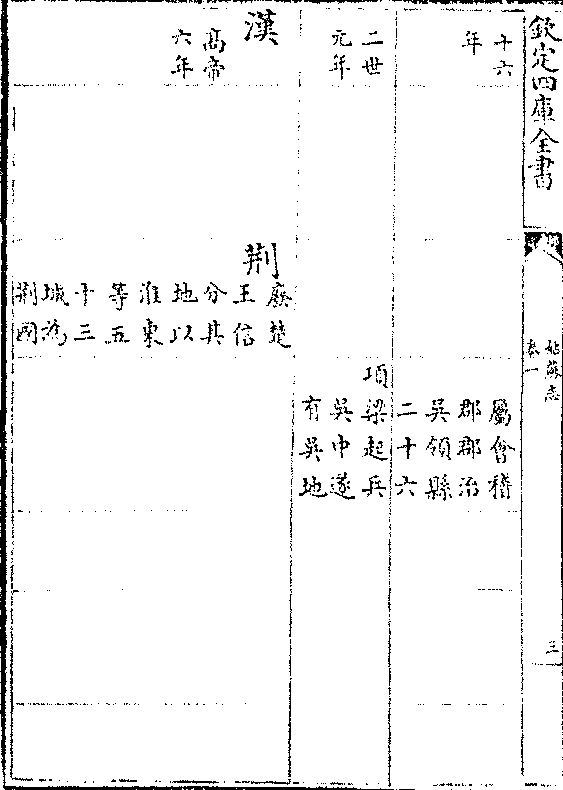 欽定四庫全書
姑蘇志
卷一
三
十六
年
屬會稽
郡郡治
吳領縣
二十六
二世
元年
項梁起兵
吳中遂
有吳地
漢
高帝
六年
荆
廢楚
王信
分其
地以
淮東
等五
十三
城為
荆國